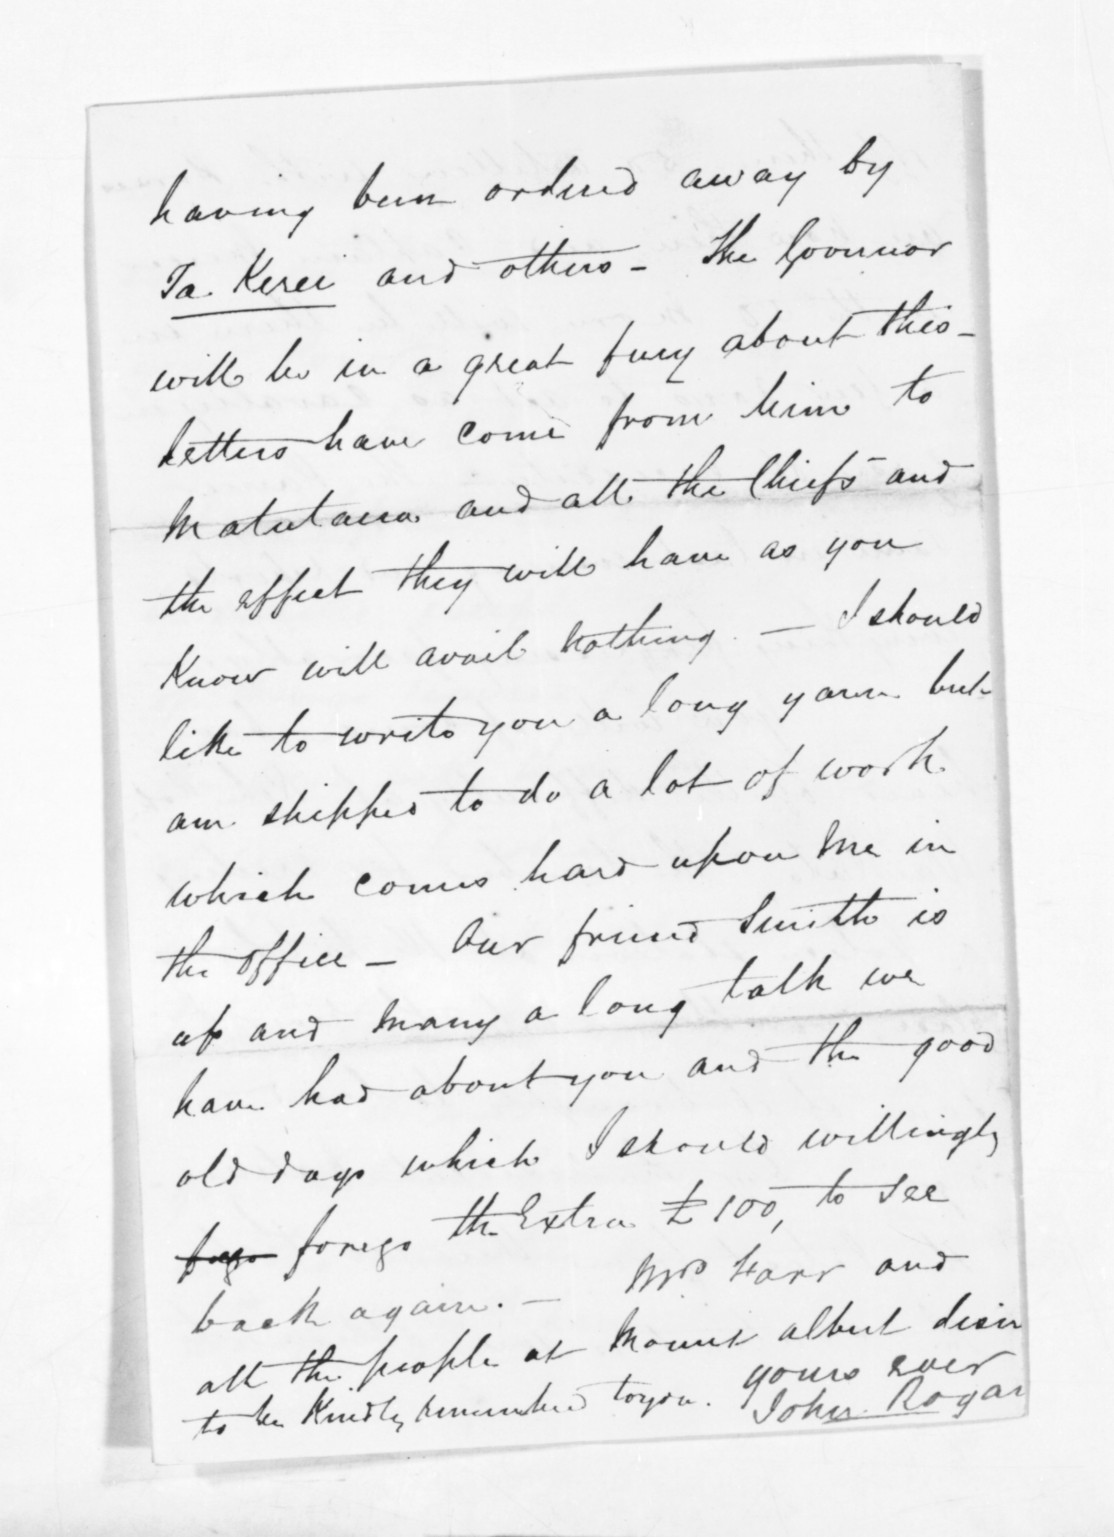 having been ordered away by
Ta Kerei and others - The Governor
will be in a great fury about this -
letters have come from him to
Matutaera and all the Chiefs and
the effect they will have as you
Know will avail nothing. - I should
like to write you a long yarn but
am shipped to do a lot of work
which comes hard upon me in
the office - Our friend Smith is
up and many a long talk we
have had about you and the good
old days which I should willingly
forego the Extra £100, to see
back again. - Mrs Farr and
all the people at Mount albert desire
to be Kindly remembered to you. yours ever
John Rogan